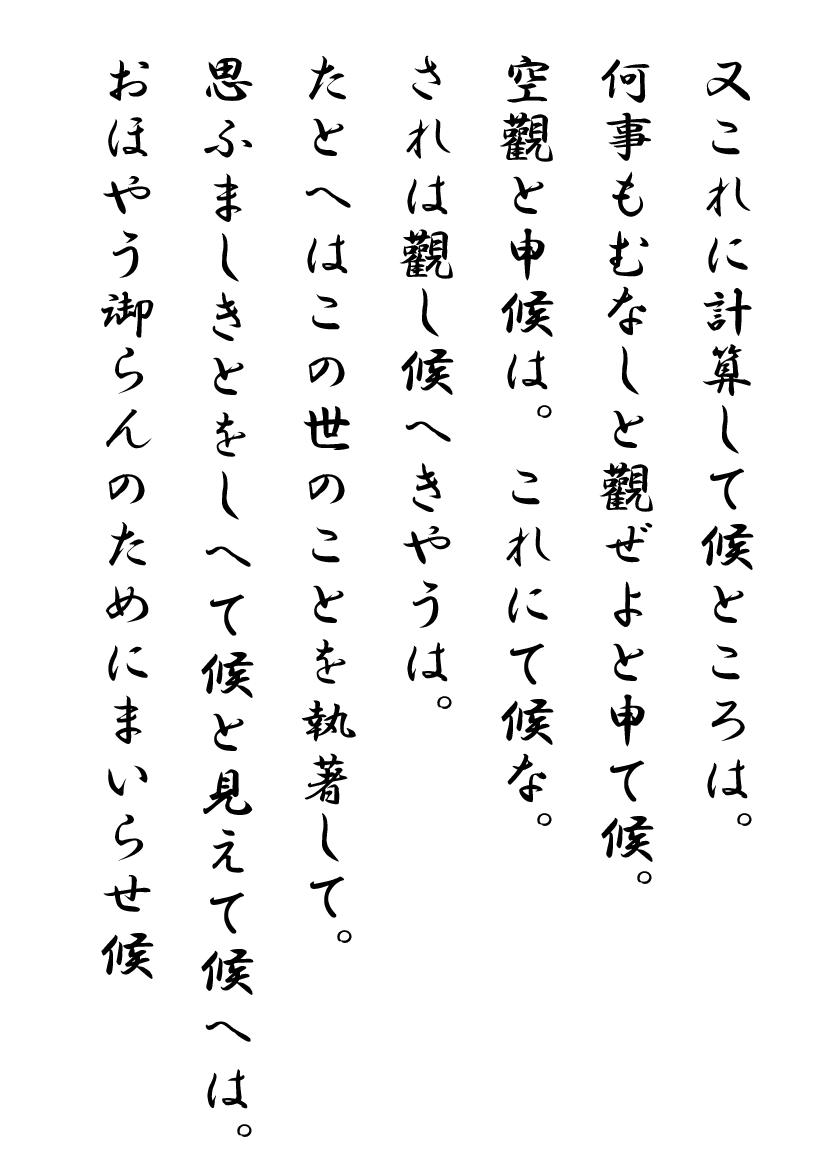 又これに計算して候ところは。
何事もむなしと觀ぜよと申て候。
空觀と申候は。　これにて候な。
されは觀し候へきやうは。
たとへはこの世のことを執著して。
思ふましきとをしへて候と見えて候へは。
おほやう御らんのためにまいらせ候